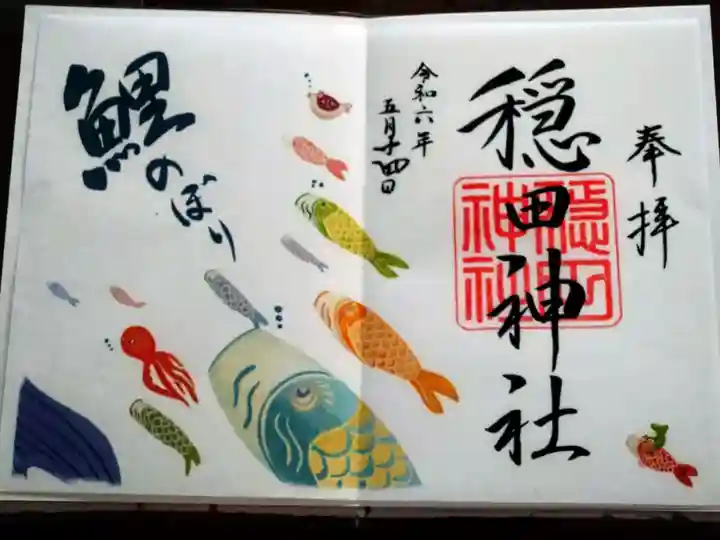 奉拝
穏田神社
穏田
神社
令和六年
五月十四日
鯉のぼり